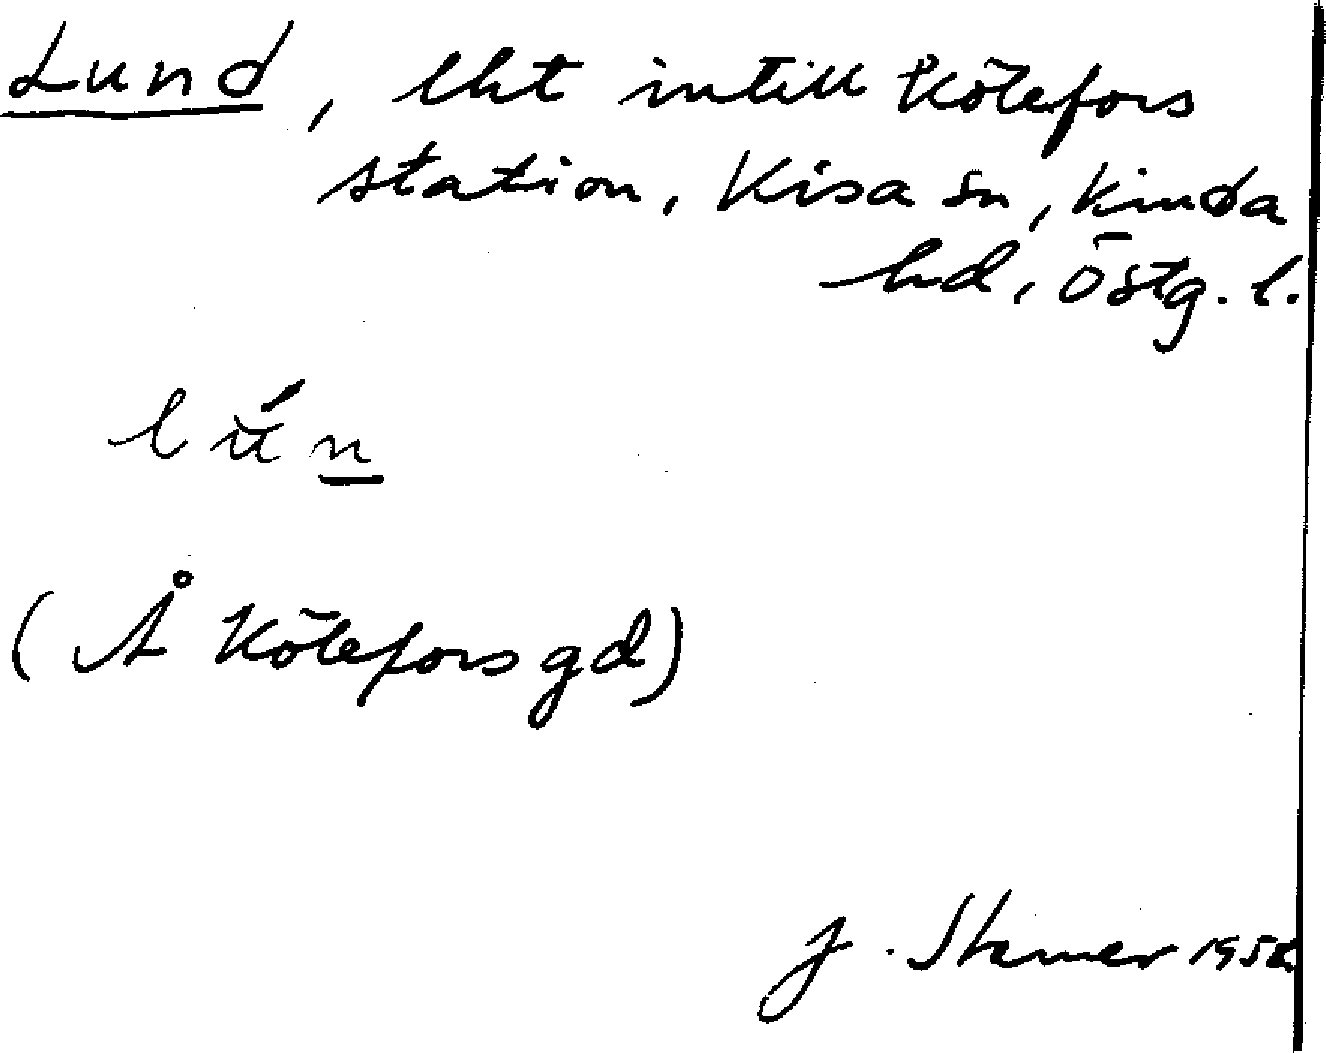 Lund, lht intill Kölefors
station, Kisa sn, Kinda
hd, Östg. l.
lún
(Å Kölefors gd)
J.